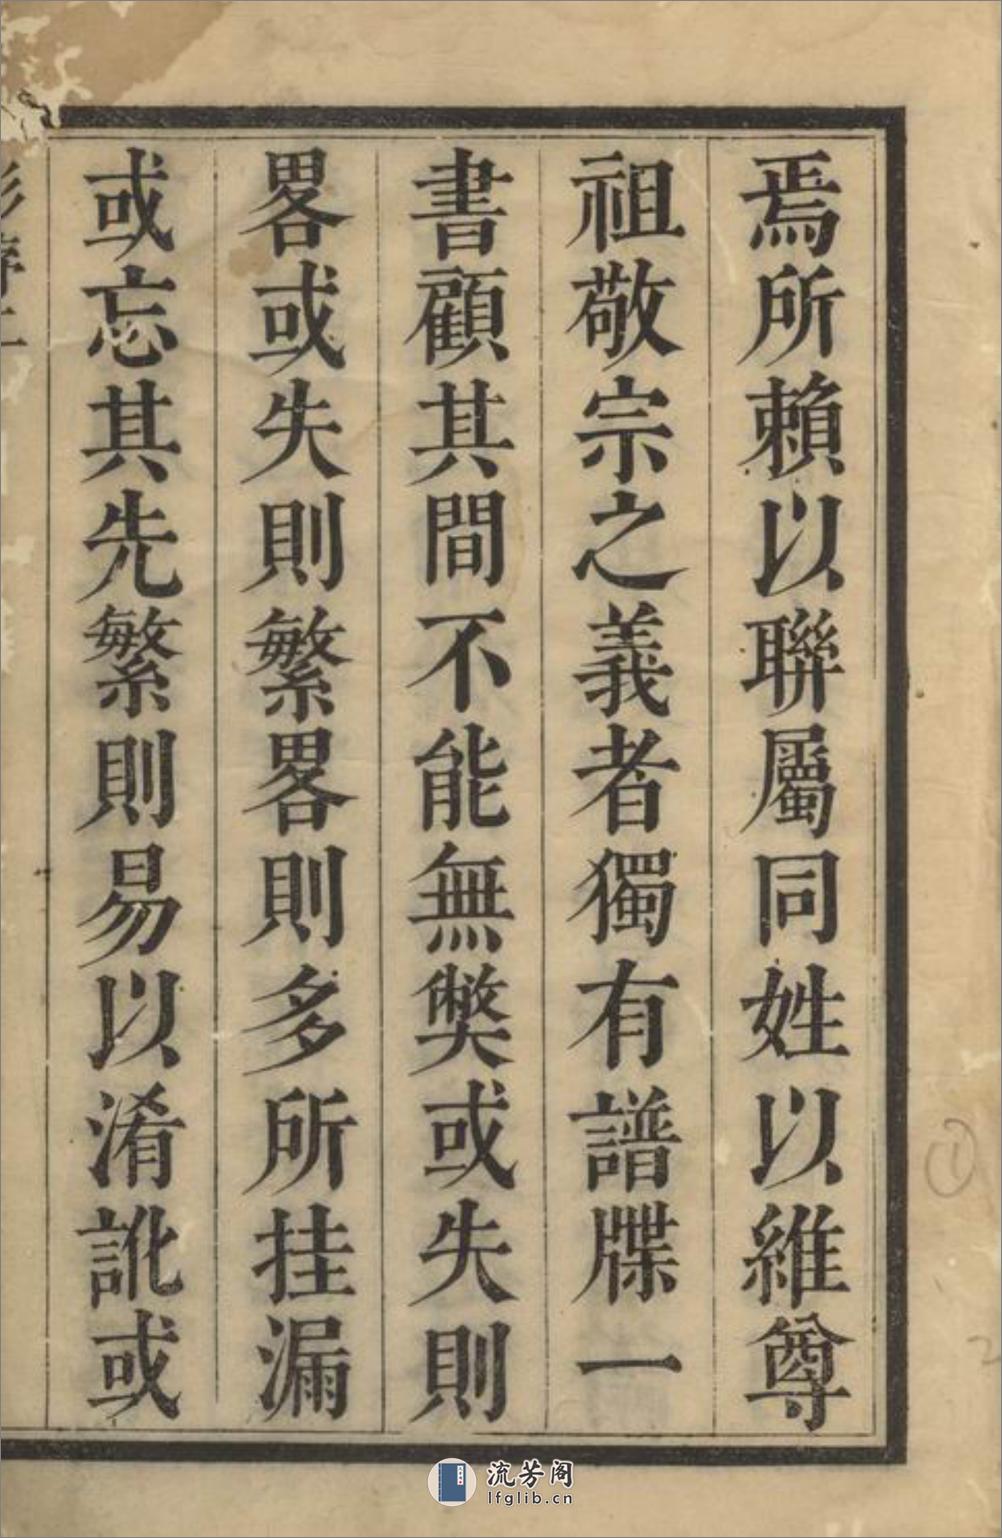 焉所賴以聯屬同姓以維尊
祖敬宗之義者獨有譜牒一
書顧其間不能無弊或失則
畧或失則繁畧則多所挂漏
或忘其先繁則易以淆訛或
流芳阁
lfglib.cn